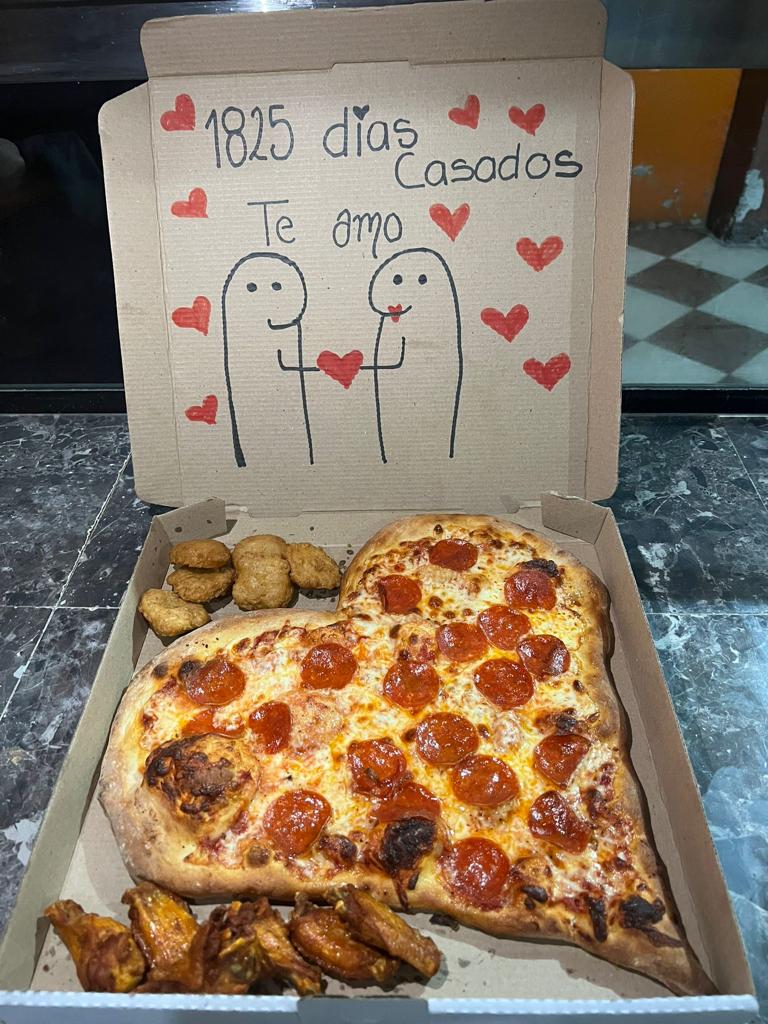 1825 dias
Casados
Te amo